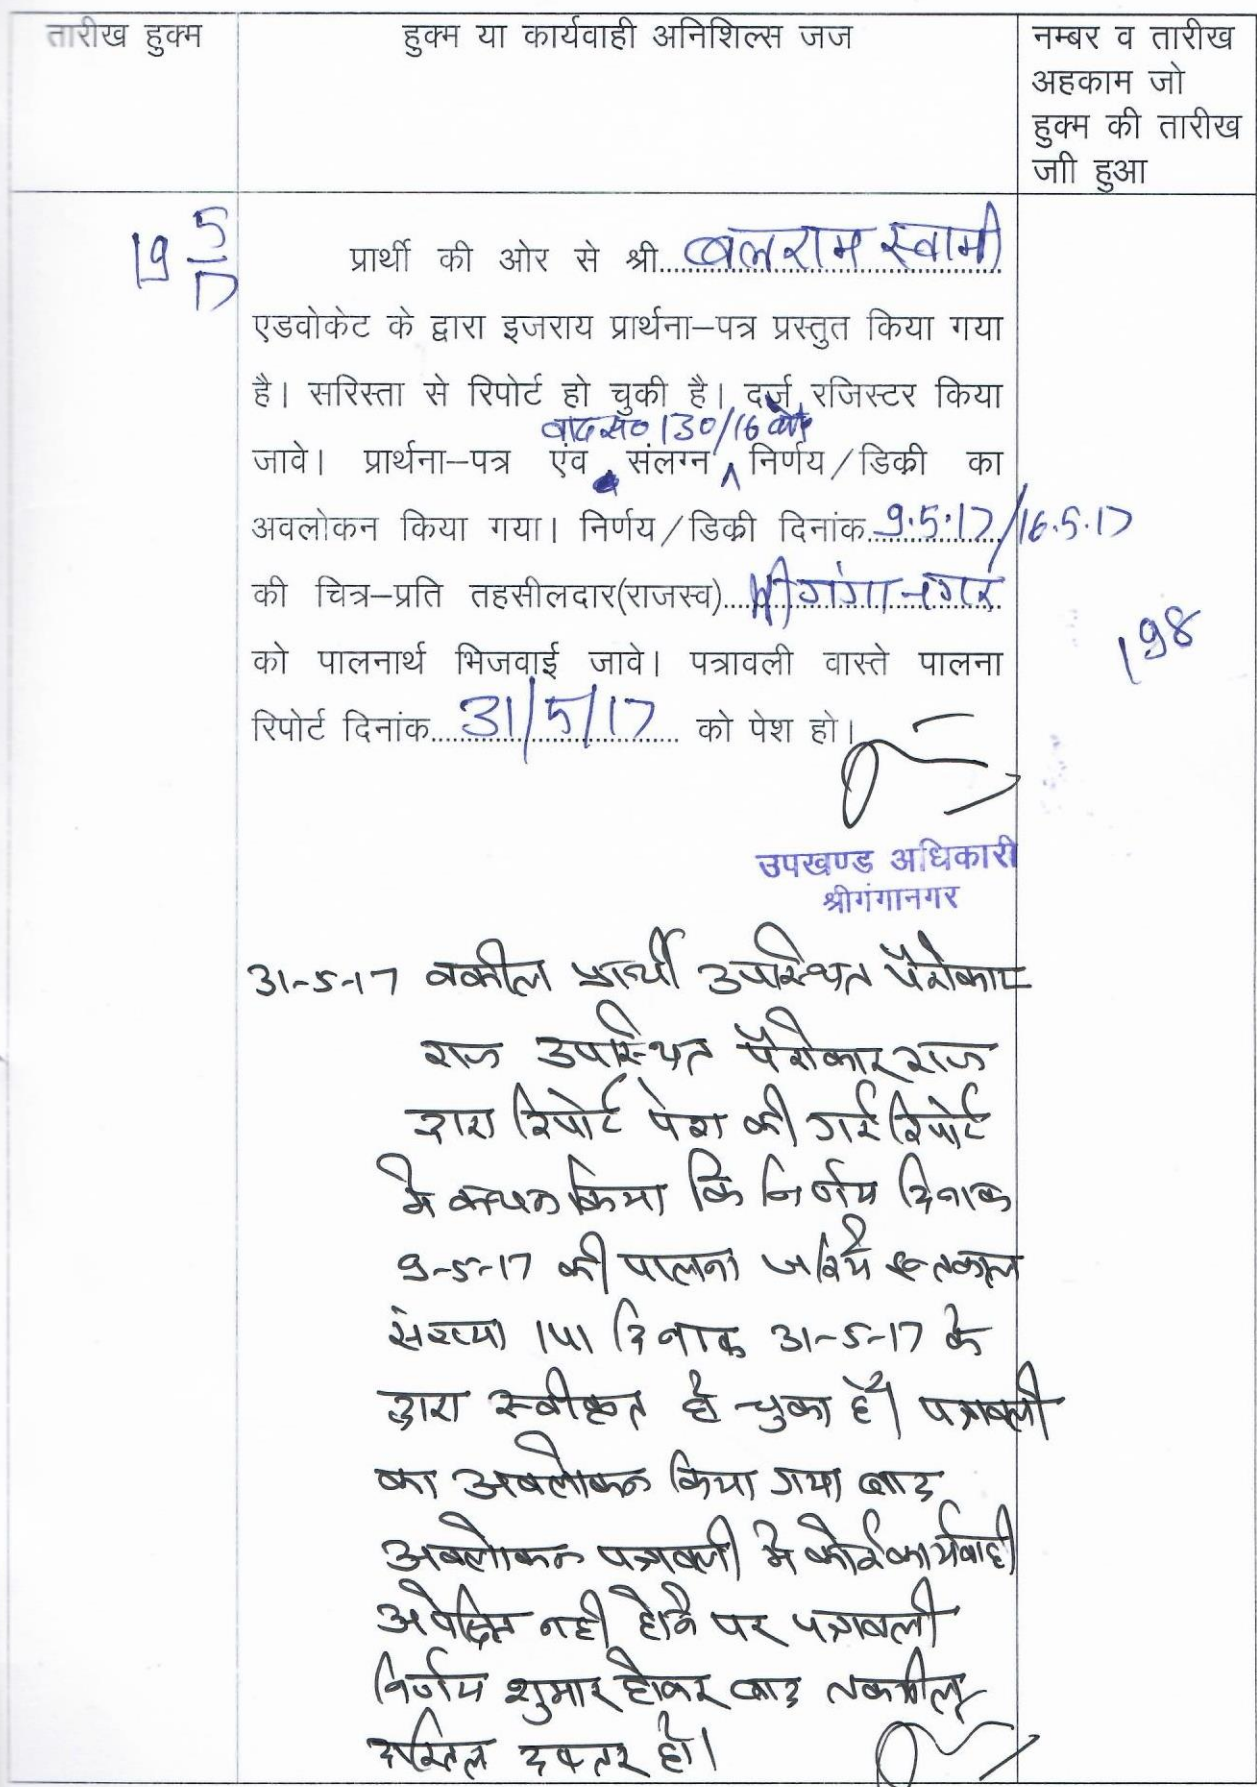 तारीख हुक्म
हुक्म या कार्यवाही अनिशिल्स जज
नम्बर व तारीख
अहकाम जो
हुक्म की तारीख
जाी हुआ
19 5/17
प्रार्थी की ओर से श्री बलराम स्वामी
एडवोकेट के द्वारा इजराय प्रार्थना–पत्र प्रस्तुत किया गया
है। सरिस्ता से रिपोर्ट हो चुकी है। दर्ज रजिस्टर किया
वाद स० 130/16 के
जावे। प्रार्थना–पत्र एंव संलग्न ^ निर्णय/डिकी का
अवलोकन किया गया। निर्णय/डिकी दिनांक 9.5.17/16.5.17
की चित्र–प्रति तहसीलदार(राजस्व) श्रीगंगानगर
को पालनार्थ भिजवाई जावे। पत्रावली वास्ते पालना
198
रिपोर्ट दिनांक 31/5/17 को पेश हो।
उपखण्ड अधिकारी
श्रीगंगानगर
31-5-17 वकील प्रार्थी उपस्थित पैरोकार
राज उपस्थित पैरोकार राज
द्वारा रिपोर्ट पेश की गई रिपोर्ट
मे कथन किया कि निर्णय दिनाक
9-5-17 की पालना जरिये इन्तकाल
संख्या 141 दिनाक 31-5-17 के
द्वारा स्वीकृत हो चुका है। पत्रावली
का अवलोकन किया गया बाद
अवलोकन पत्रावली मे कोई कार्यवाही
अपेक्षित नही होने पर पत्रावली
निर्णय शुमार होकर बाद तकमील
दाखिल दफ्तर हो।